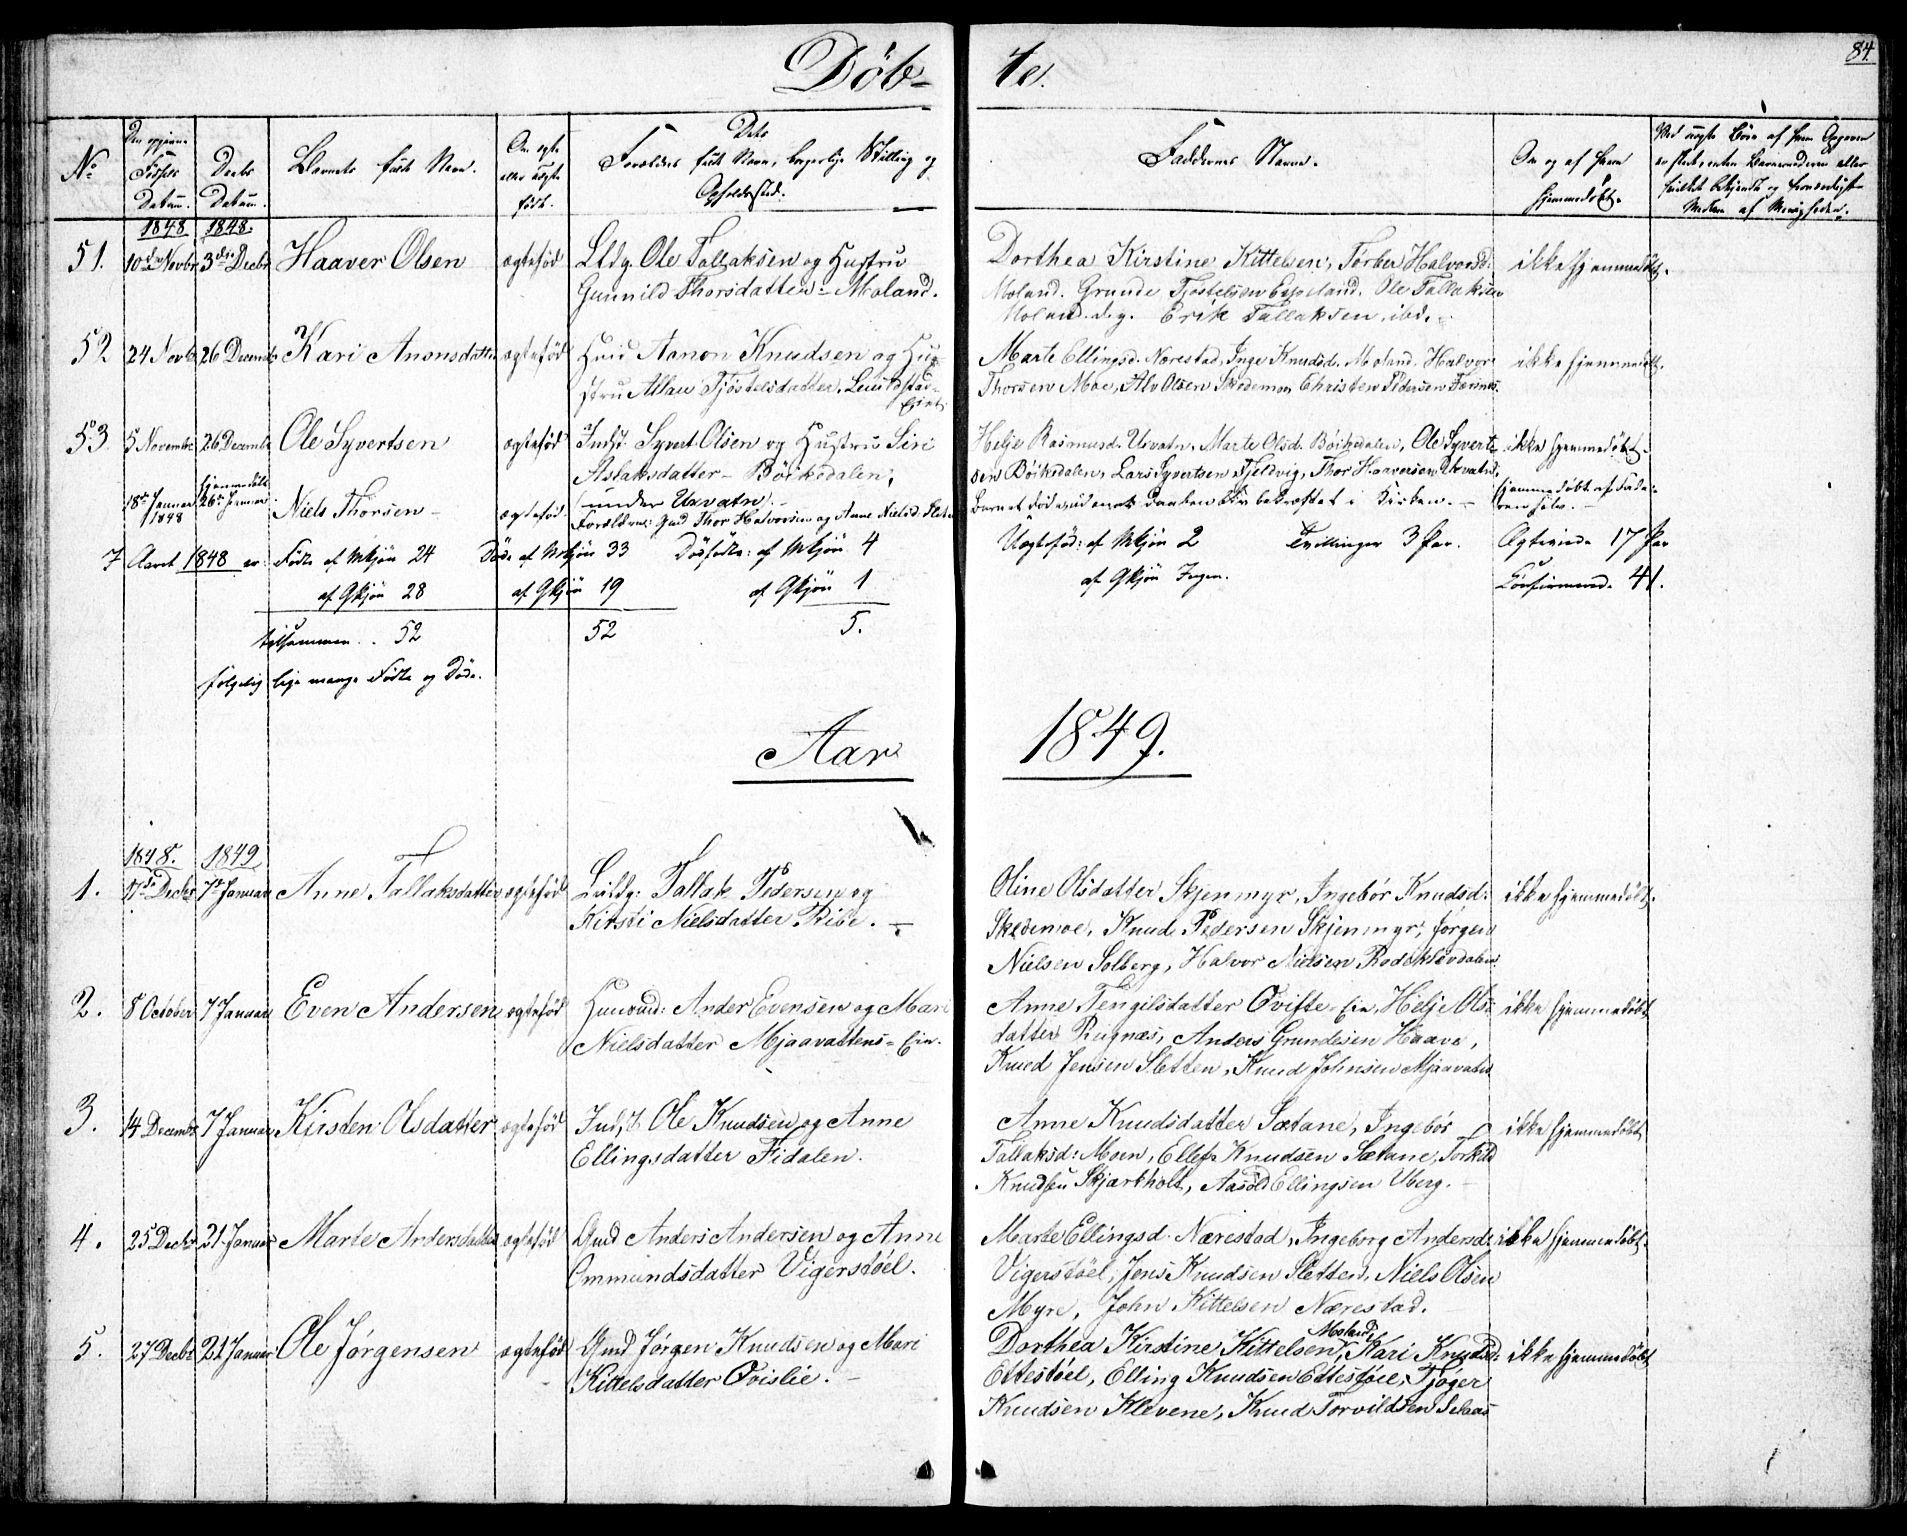 Døb-
te.
84.
No
Den opgivne Fødsels Datum.
Daabs Datum.
Barnets fulde Navn.
Om ægte eller uægte født.
Dets Forældres fulde Navn, borgerlige Stilling og Opholdssted.
Faddernes Navne.
Om og af hvem hjemmedøbt.
1848
1848.
51.
10de Novbr
3die Decbr
Haaver Olsen
ægtefød
Ltdg. Ole Tallaksen og Hustru
Gunnild Thorsdatter - Moland.
Dorthea Kirstine Kittelsen, Torber Halvorsd:
Moland. Grunde Tjøstelsen Espeland. Ole Tallaksen
Moland. d.y. Erik Tallaksen, ibd.
ikke hjemmedøbt.
52
24 Novb
26 Decemb
Kari Anonsdatter
ægtefød
Huusd Aanon Knudsen og Hu-
stru Tjøstelsdatter.
Marte Ellingsd. Nærestad, Inge Knudsd. Moland. Halvor
Thorsen Moe, Alv Olsen Skedemoe, Christen Pedersen
ikke hjemmedøbt.
53
5 Novembr
26 Decembr
Ole Syvertsen
ægtefød
Indst. Syvert Olsen og Hustru Siri
Aslaksdatter - Böiksdalen,
(under Uevatne). -
Helje Rasmusd. Uevatn. Marte Olsd. Böiksdalen, Ole Syvert-
sen Böiksdalen, Lars Syvertsen Fjeldvig, Thor Haaversen Uevatn.
ikke hjemmedøbt.
18de Januar 1848
hjemmedøbt 26de Januar
Niels Thorsen -
ægtefød.
Forældrene: Gmd Thor Halvorsen og Anne Nielsd: Sleten
Barnet døde, uden at Daaben blev bekræftet i Kirken. -
hjemmedøbt af Fade-
ren selv. -
I Aaret 1848 er: Fødte af Mkjøn 24 Døde af Mkjøn 33 Dødfødte: af Mkjøn 4
Uægtefød: af Mkjøn 2 Tvillinger 3 Par. Ægteviede 17 Par
af Qkjøn 28 af Qkjøn 19 af Qkjøn 1
af Qkjøn Ingen. Confirmerede 41.
tilsammen . . 52 52 5.
følgelig lige mange Fødte og Døde.
Aar 1849.
1848.
1849
1.
17de Decbr
7de Januar
Anne Tallaksdatter
ægtefød
Tallak Pedersen og
Kirsti Nielsdatter Ribe. -
Oline Olsdatter Skjenmyr, Ingebór Knudsd:
Skedemoe, Knud Pedersen Skjenmyr, Jørgen
Nielsen Solberg, Halvor Nielsen
ikke hjemmedøbt.
2.
8 October
7 Januar
Even Andersen
ægtefød
Huusmd: Ander Evensen og Mari
Nielsdatter Mjaavattens-Eie.
Anne Tengilsdatter Øvifte Eie, Helje Ols-
datter Rugnæs, Anders Grundesen Haave,
Knud Jensen Sletten, Knud Johnsen Mjaavatn
ikke hjemmedøbt
3.
14 Decembr
7 Januar
Kirsten Olsdatter
ægtefød
Indst Ole Knudsen og Anne
Ellingsdatter Fidalen.
Anne Knudsdatter Sætane, Ingebór
Tallaksd: Moen, Ellef Knudsen Sætane, Torkild
Knudsen Skjærkholt, Aasold Ellingsen Uberg. -
ikke hjemmedøbt
4.
25 Decbr
21 Januar
Marte Andersdatter
ægtefød
Gmd Anders Andersen og Anne
Ommundsdatter Vigerstøel.
Marte Ellingsd. Nærestad, Ingeborg Andersd:
Vigerstøel, Jens Knudsen Sletten, Niels Olsen
Myre, John Kittelsen Nærestad.
ikke hjemmedøbt.
5.
27 Decbr
21 Januar
Ole Jørgensen
ægtefød
Gmd Jørgen Knudsen og Mari
Kittelsdatter Øvislie. -
Moland
Dorthea Kirstine Kittelsen, Kari Knudsd:
Ettestøel, Elling Knudsen Ettestøel, Tjøger
Knudsen Klevene, Knud Torvildsen Selaas
ikke hjemmedøbt